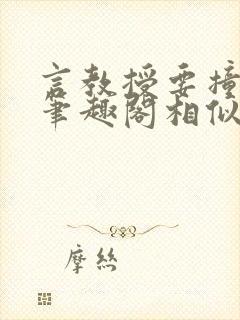 言教授要撞
笔趣阁相似
摩丝